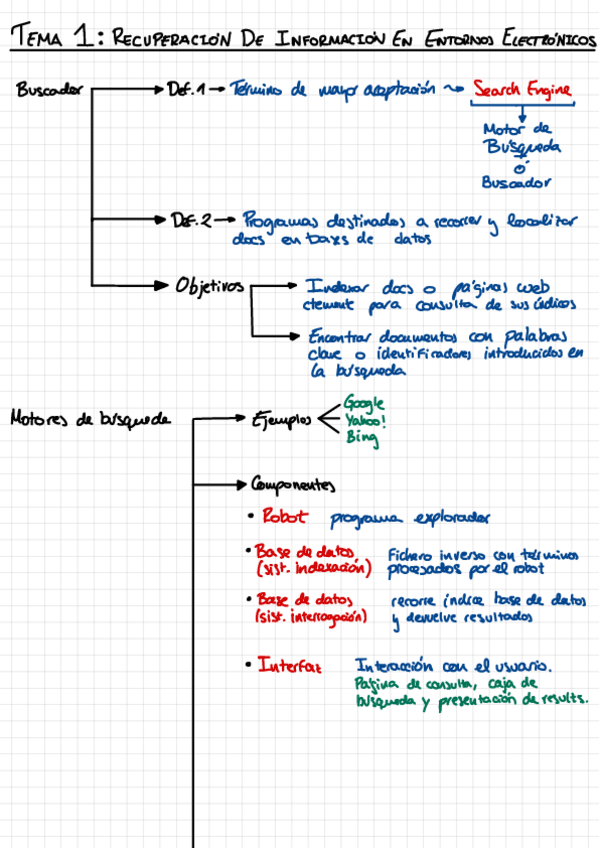 TEMA 1: RECUPERACIÓN DE INFORMACIÓN EN ENTORNOS ELECTRÓNICOS
Buscador
Def. 1 → Término de mayor aceptación
Search Engine
Motor de
Búsqueda
ó
Buscador
Def. 2 → Programas destinados a recorrer y localizar
docs en bases de datos
Objetivos
Indexar docs o páginas web
para consulta de sus índices
Encontrar documentos con palabras
clave o identificadores introducidos en
la búsqueda
Motores de búsqueda
Ejemplos
Google
Yahoo!
Bing
Componentes
• Robot programa explorador
• Base de datos Fichero inverso con términos
(sist. indexación) procesados por el robot
• Base de datos recorre índice base de datos
(sist. interrogación) y devuelve resultados
• Interfaz Interacción con el usuario.
Página de consulta, caja de
búsqueda y presentación de results.